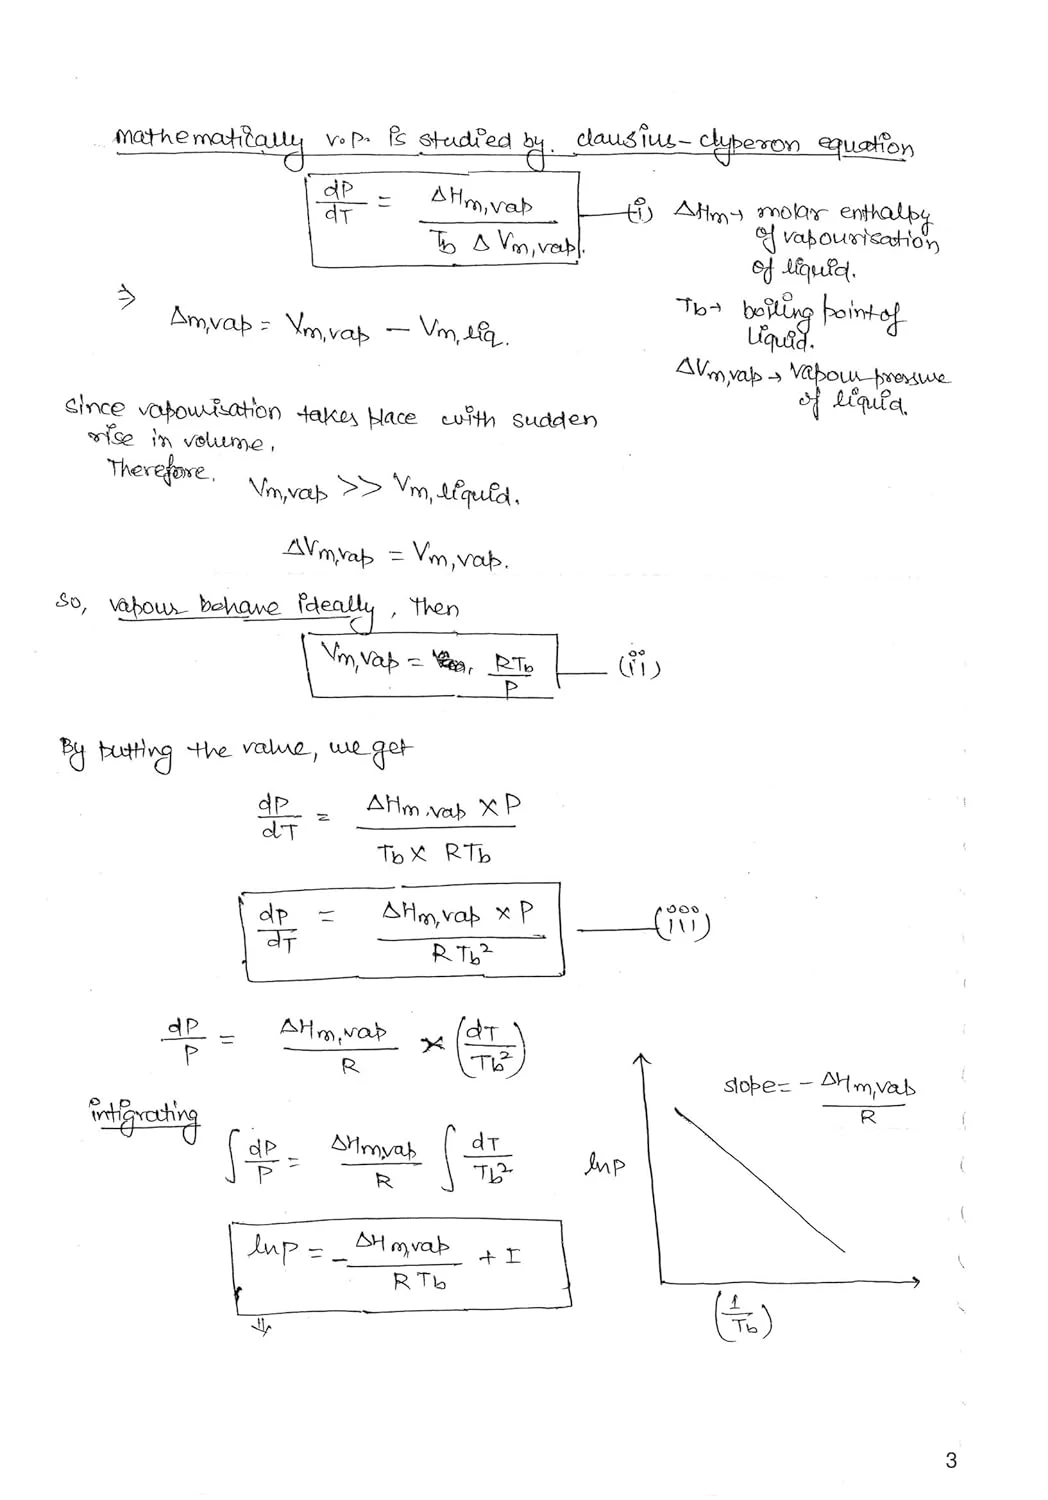 mathematically v.p. is studied by. clausius-clyperon equation
dP/dT = ΔHm,vap / Tb ΔVm,vap. —(i)
ΔHm→ molar enthalpy
of vapourisation
of liquid.
Tb→ boiling point of
liquid.
ΔVm,vap → vapour pressure
of liquid.
⇒ Δm,vap = Vm,vap − Vm,liq.
Since vapourisation takes place with sudden
rise in volume.
Therefore.
Vm,vap >> Vm,liquid.
ΔVm,vap = Vm,vap.
So, vapour behave ideally, then
Vm,vap = RTb/P —(ii)
By putting the value, we get
dP/dT = ΔHm,vap × P / Tb × RTb
dP/dT = ΔHm,vap × P / RTb² —(iii)
dP/P = ΔHm,vap/R × (dT/Tb²)
intigrating
∫ dP/P = ΔHm,vap/R ∫ dT/Tb²
lnP = − ΔHm,vap/RTb + I
⇓
slope = − ΔHm,vap/R
lnP
(1/Tb)
3